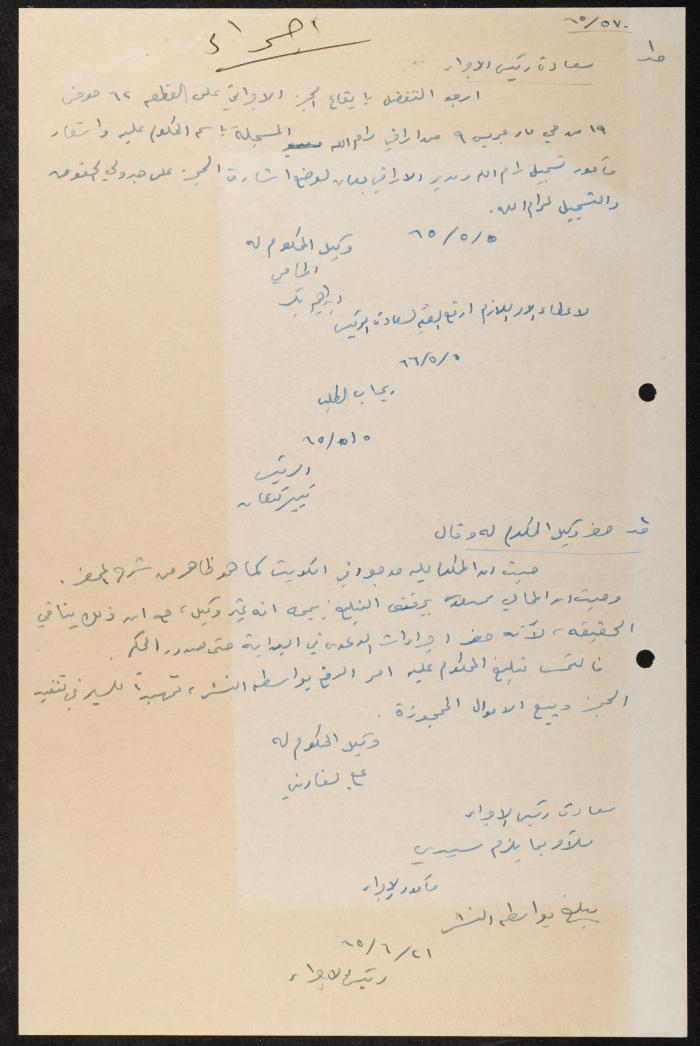 ٦٥/٥٧٠
اجراء
سعادة رئيس الاجراء
ارجو التفضل بايقاع الحجز الاجرائي على القطعه ٦٢ حوض
١٩ من حي مار جريس ٩ من اراضي رام الله المسجلة باسم المحكوم عليه واشعار
مأمور تسجيل رام الله ومدير الاراضي بعمان لوضع اشارة الحجز على جدولي الحقوق
والتسجيل لرام الله.
٦٥/٥/٥
وكيل المحكوم له
المحامي
ابراهيم بكر
لاعطاء الامر اللازم ارفع القضية لسعادة الرئيس
٦٦/٥/٥
يجاب الطلب
٦٥/٥/٥
الرئيس
تيسير كنعان
حضر وكيل المحكوم له وقال
حيث ان المحكوم عليه موجود في الكويت كما هو ظاهر من شرح المحضر.
وحيث ان المحامي يرفض التبليغ بحجه انه غير وكيل، مع ان ذلك ينافي
الحقيقه، لأنه حضر اجراءات الدعوى في البداية حتى صدور الحكم
فالتمس تبليغ المحكوم عليه امر الدفع بواسطه النشر، تمهيداً للسير في تنفيذ
الحجز وبيع الاموال المحجوزة.
وكيل المحكوم له
علي السفاريني
سعادة رئيس الاجراء
للأمر بما يلزم سيدي
مأمور الاجراء
يبلغ بواسطه النشر
٦٥/٦/٢١
رئيس الاجراء